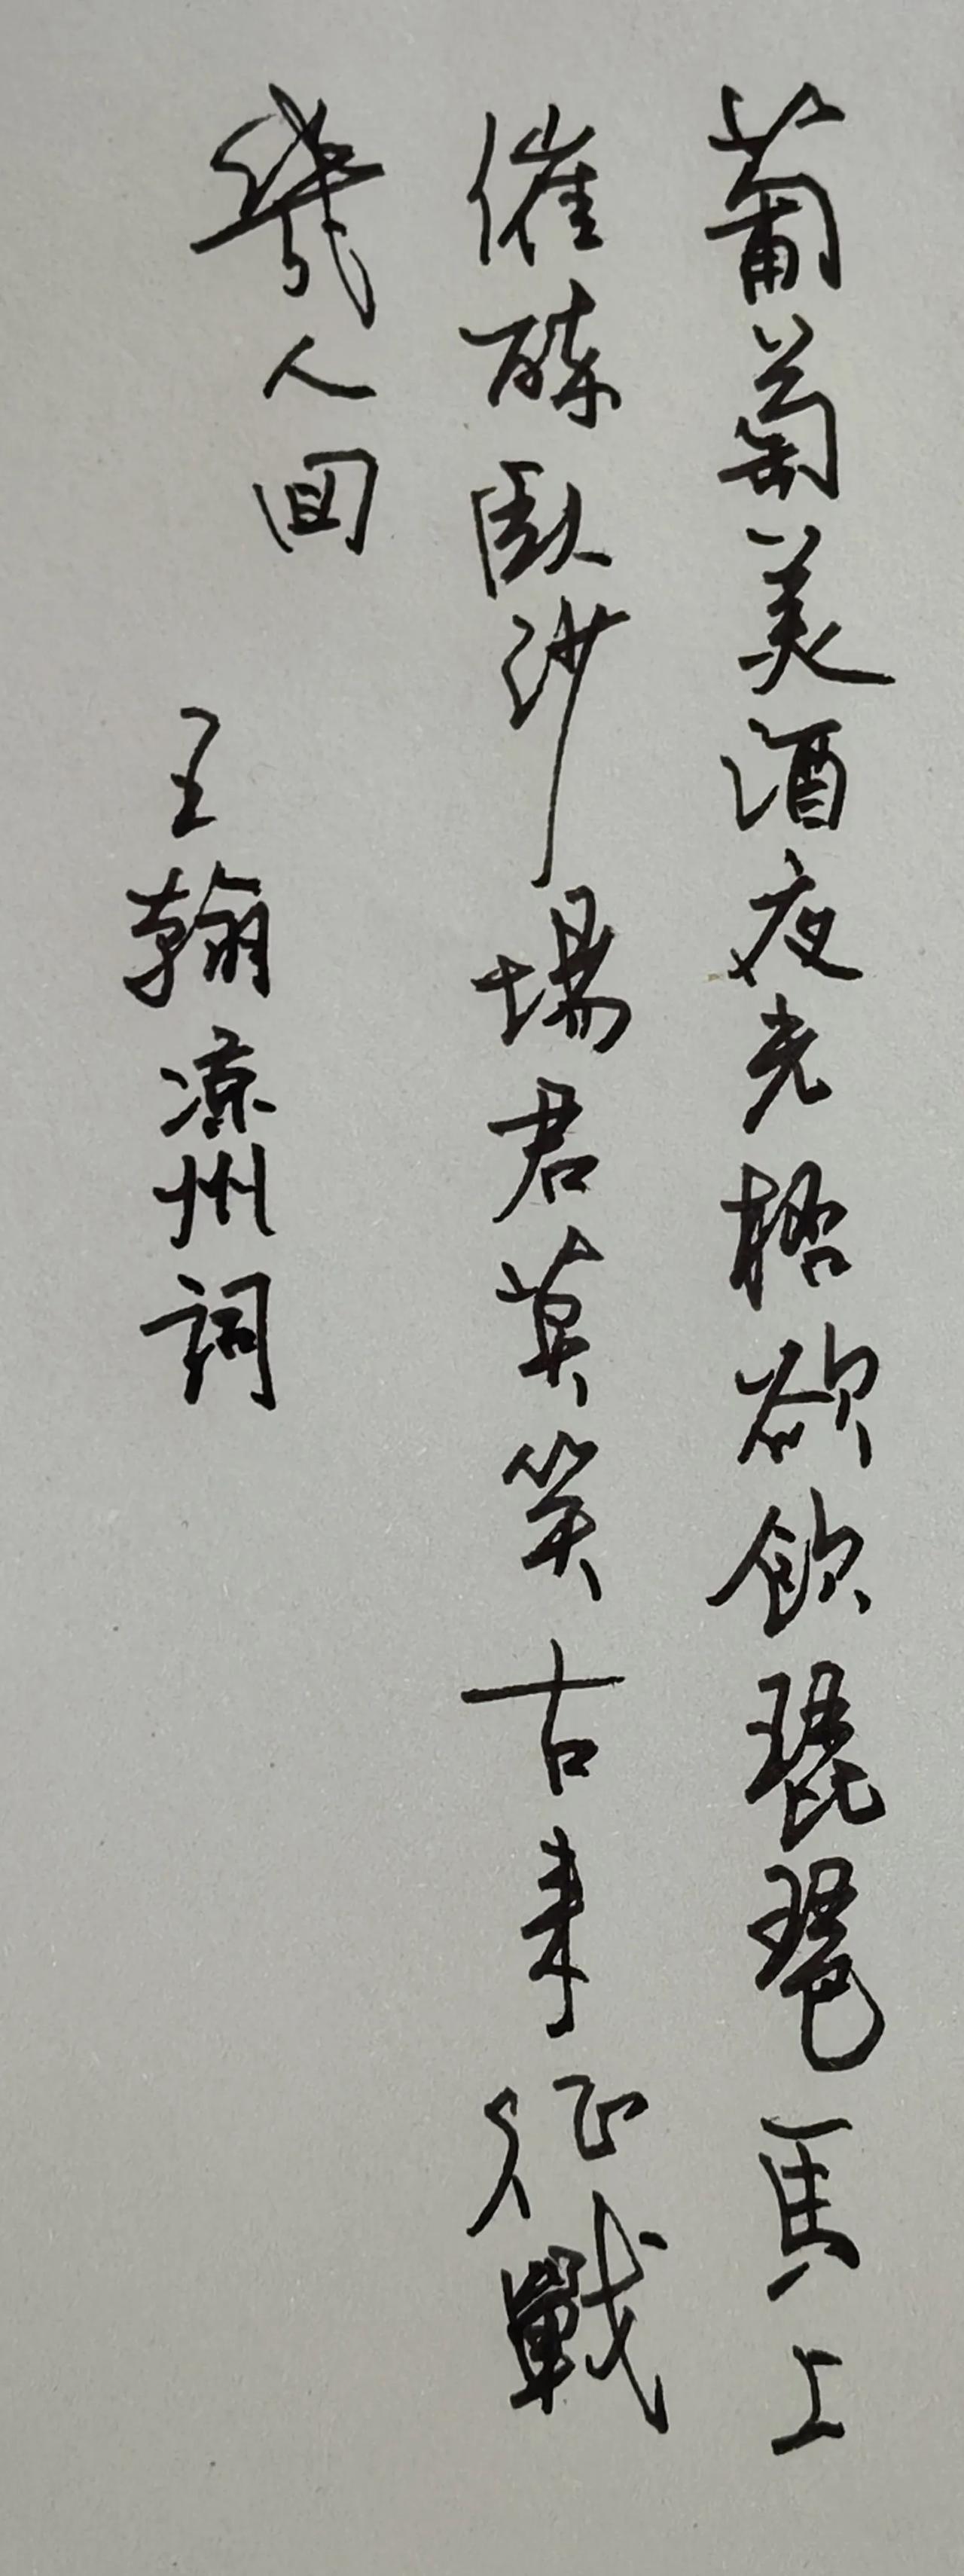 葡萄美酒夜光桮欲飲琵琶馬上
催醉臥沙場君莫笑古来征戰
幾人回 王翰凉州詞